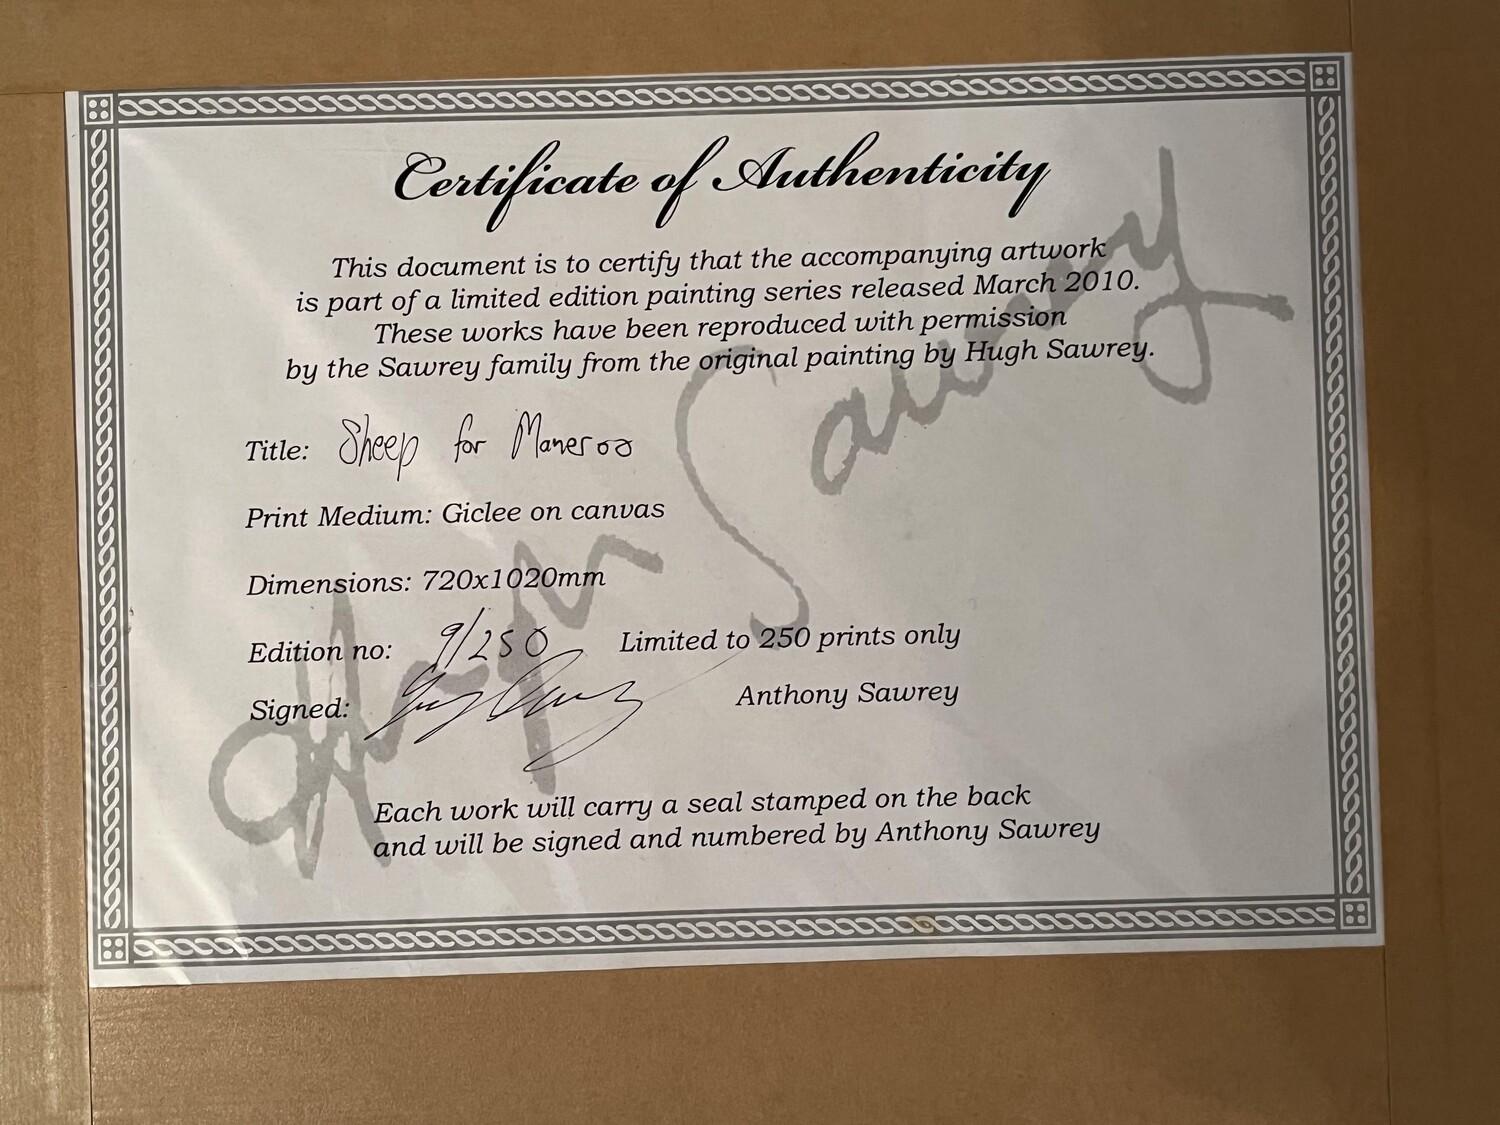 Certificate of Authenticity
This document is to certify that the accompanying artwork
is part of a limited edition painting series released March 2010.
These works have been reproduced with permission
by the Sawrey family from the original painting by Hugh Sawrey.
Title: Sheep for Maneroo
Print Medium: Giclee on canvas
Dimensions: 720x1020mm
Edition no: 9/250 Limited to 250 prints only
Signed: Anthony Sawrey
Each work will carry a seal stamped on the back
and will be signed and numbered by Anthony Sawrey
Hugh Sawrey